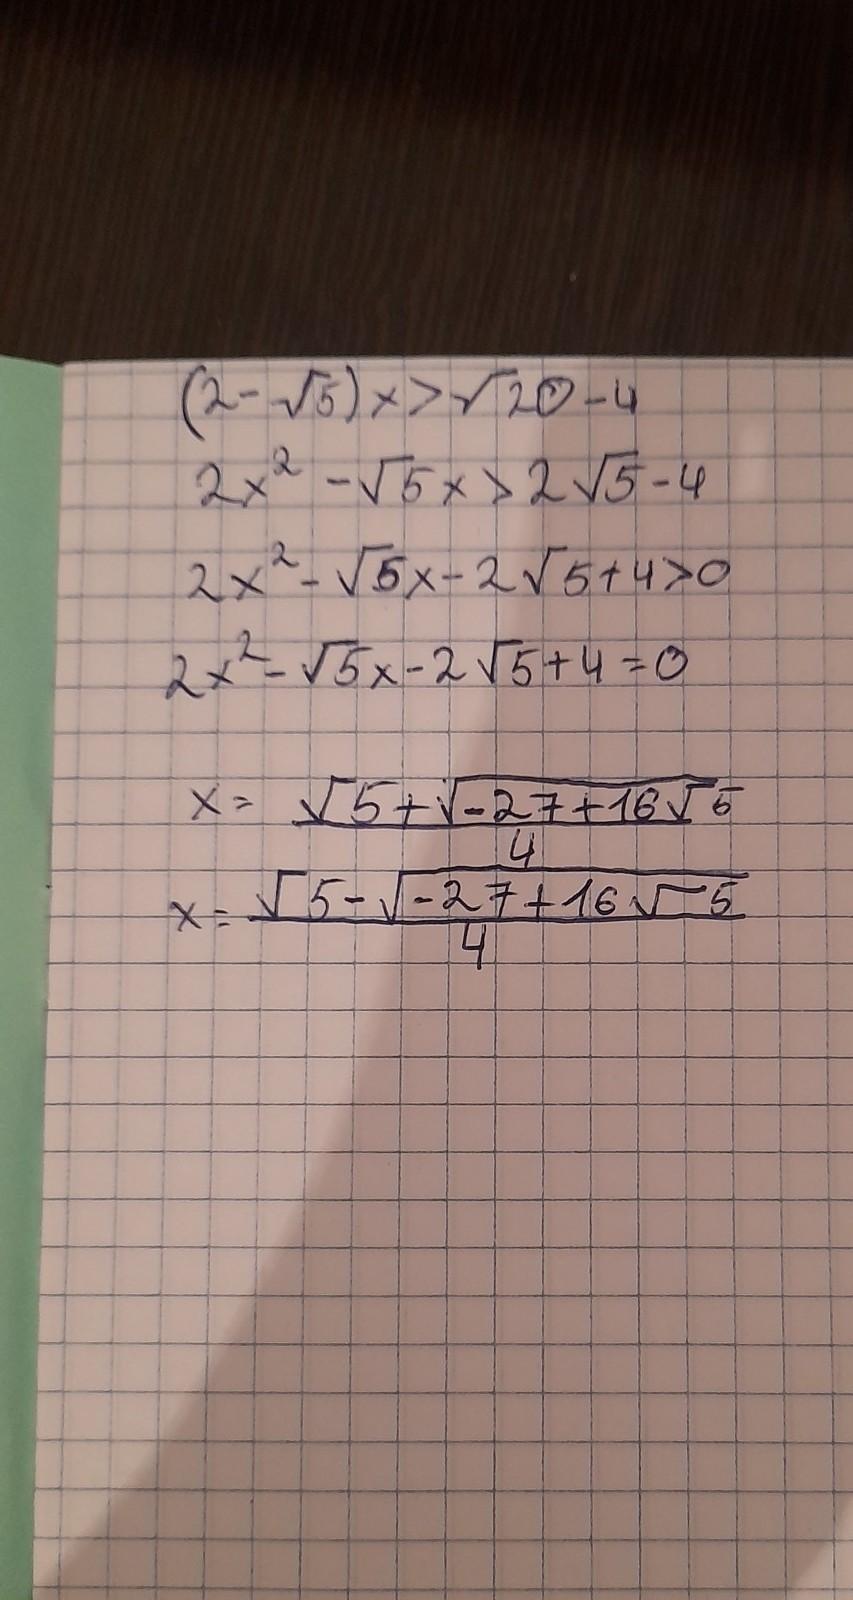 (2-√5)x>√20-4
2x²-√5x>2√5-4
2x²-√5x-2√5+4>0
2x²-√5x-2√5+4=0
x= √5+√-27+16√5
4
x= √5-√-27+16√5
4